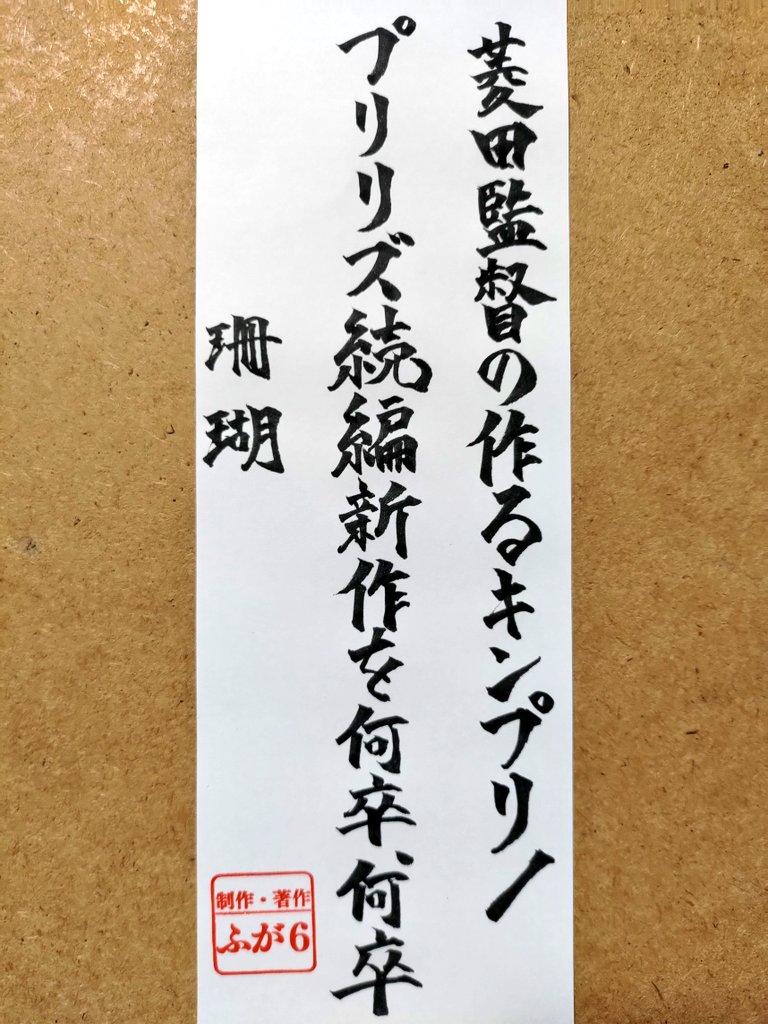 菱田監督の作るキンプリ/
プリリズ続編新作を何卒、何卒
珊瑚
制作・著作
ふが6